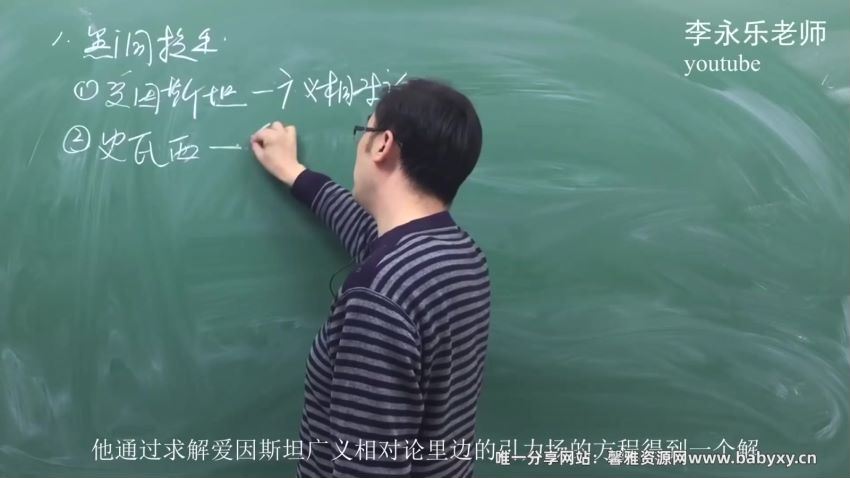 1. 黑洞提出.
① 爱因斯坦 — 广义相对论
② 史瓦西 —
李永乐老师
youtube
他通过求解爱因斯坦广义相对论里边的引力场的方程得到一个解
唯一分享网站：馨雅资源网www.babyxy.cn